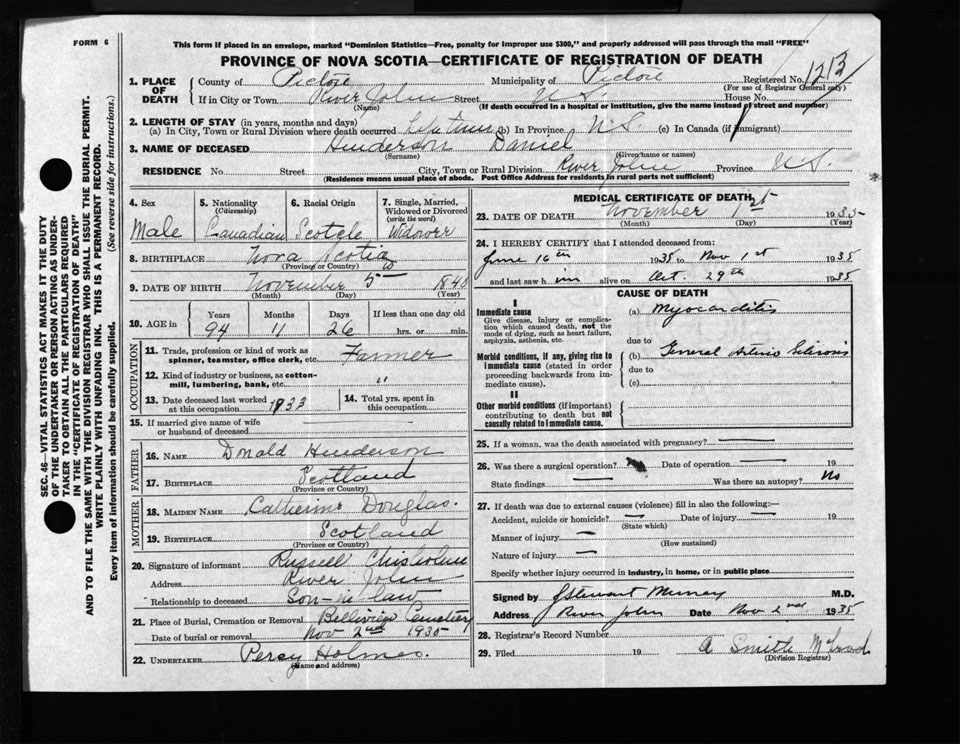 FORM 6
This form if placed in an envelope, marked "Dominion Statistics—Free, penalty for improper use $300," and properly addressed will pass through the mail "FREE"
PROVINCE OF NOVA SCOTIA—CERTIFICATE OF REGISTRATION OF DEATH
1. PLACE OF DEATH
County of Pictou Municipality of Pictou Registered No. 1213
(For use of Registrar General only)
If in City or Town River John Street N.S. House No.
(Name) (If death occurred in a hospital or institution, give the name instead of street and number)
2. LENGTH OF STAY (in years, months and days)
(a) In City, Town or Rural Division where death occurred Lifetime (b) In Province N.S. (c) In Canada (if immigrant)
3. NAME OF DECEASED Henderson Daniel
(Surname) (Given name or names)
RESIDENCE No. Street City, Town or Rural Division River John Province N.S.
(Residence means usual place of abode. Post Office Address for residents in rural parts not sufficient)
4. Sex Male
5. Nationality (Citizenship) Canadian
6. Racial Origin
7. Single, Married, Widowed or Divorced (write the word) Widower
8. BIRTHPLACE Nova Scotia
(Province or Country)
9. DATE OF BIRTH November 5 1840
(Month) (Day) (Year)
10. AGE in Years Months Days If less than one day old
94 11 26 hrs. or min.
OCCUPATION
11. Trade, profession or kind of work as spinner, teamster, office clerk, etc. Farmer
12. Kind of industry or business, as cotton-mill, lumbering, bank, etc. "
13. Date deceased last worked at this occupation 1933
14. Total yrs. spent in this occupation
15. If married give name of wife or husband of deceased
FATHER
16. NAME Donald Henderson
17. BIRTHPLACE Scotland
(Province or Country)
MOTHER
18. MAIDEN NAME Catherine Douglas.
19. BIRTHPLACE Scotland
(Province or Country)
20. Signature of informant Russell Chisholm
Address River John
Relationship to deceased Son-in-law
21. Place of Burial, Cremation or Removal Cemetery
Date of burial or removal Nov 2nd 1935
22. UNDERTAKER Percy Holmes.
(Name and address)
MEDICAL CERTIFICATE OF DEATH
23. DATE OF DEATH November 1st 1935
(Month) (Day) (Year)
24. I HEREBY CERTIFY that I attended deceased from:
June 16th 1935 to Nov 1st 1935
and last saw him alive on Oct. 29th 1935
CAUSE OF DEATH
I
Immediate cause
Give disease, injury or complication which caused death, not the mode of dying, such as heart failure, asphyxia, asthenia, etc.
(a) Myocarditis
due to
Morbid conditions, if any, giving rise to immediate cause (stated in order proceeding backwards from immediate cause).
(b) General Arterio Sclerosis
due to
(c)
II
Other morbid conditions (if important) contributing to death but not causally related to immediate cause.
25. If a woman, was the death associated with pregnancy?
26. Was there a surgical operation? Date of operation 19
State findings Was there an autopsy? No
27. If death was due to external causes (violence) fill in also the following:—
Accident, suicide or homicide? Date of injury 19
(State which)
Manner of injury
(How sustained)
Nature of injury
Specify whether injury occurred in industry, in home, or in public place
Signed by J Stewart Murray M.D.
Address River John Date Nov 2nd 1935
28. Registrar's Record Number
29. Filed 19 A Smith
(Division Registrar)
SEC. 46—VITAL STATISTICS ACT MAKES IT THE DUTY OF THE UNDERTAKER OR PERSON ACTING AS UNDERTAKER TO OBTAIN ALL THE PARTICULARS REQUIRED IN THE "CERTIFICATE OF REGISTRATION OF DEATH"
AND TO FILE THE SAME WITH THE DIVISION REGISTRAR WHO SHALL ISSUE THE BURIAL PERMIT.
WRITE PLAINLY WITH UNFADING INK. THIS IS A PERMANENT RECORD.
Every item of information should be carefully supplied. (See reverse side for instructions.)